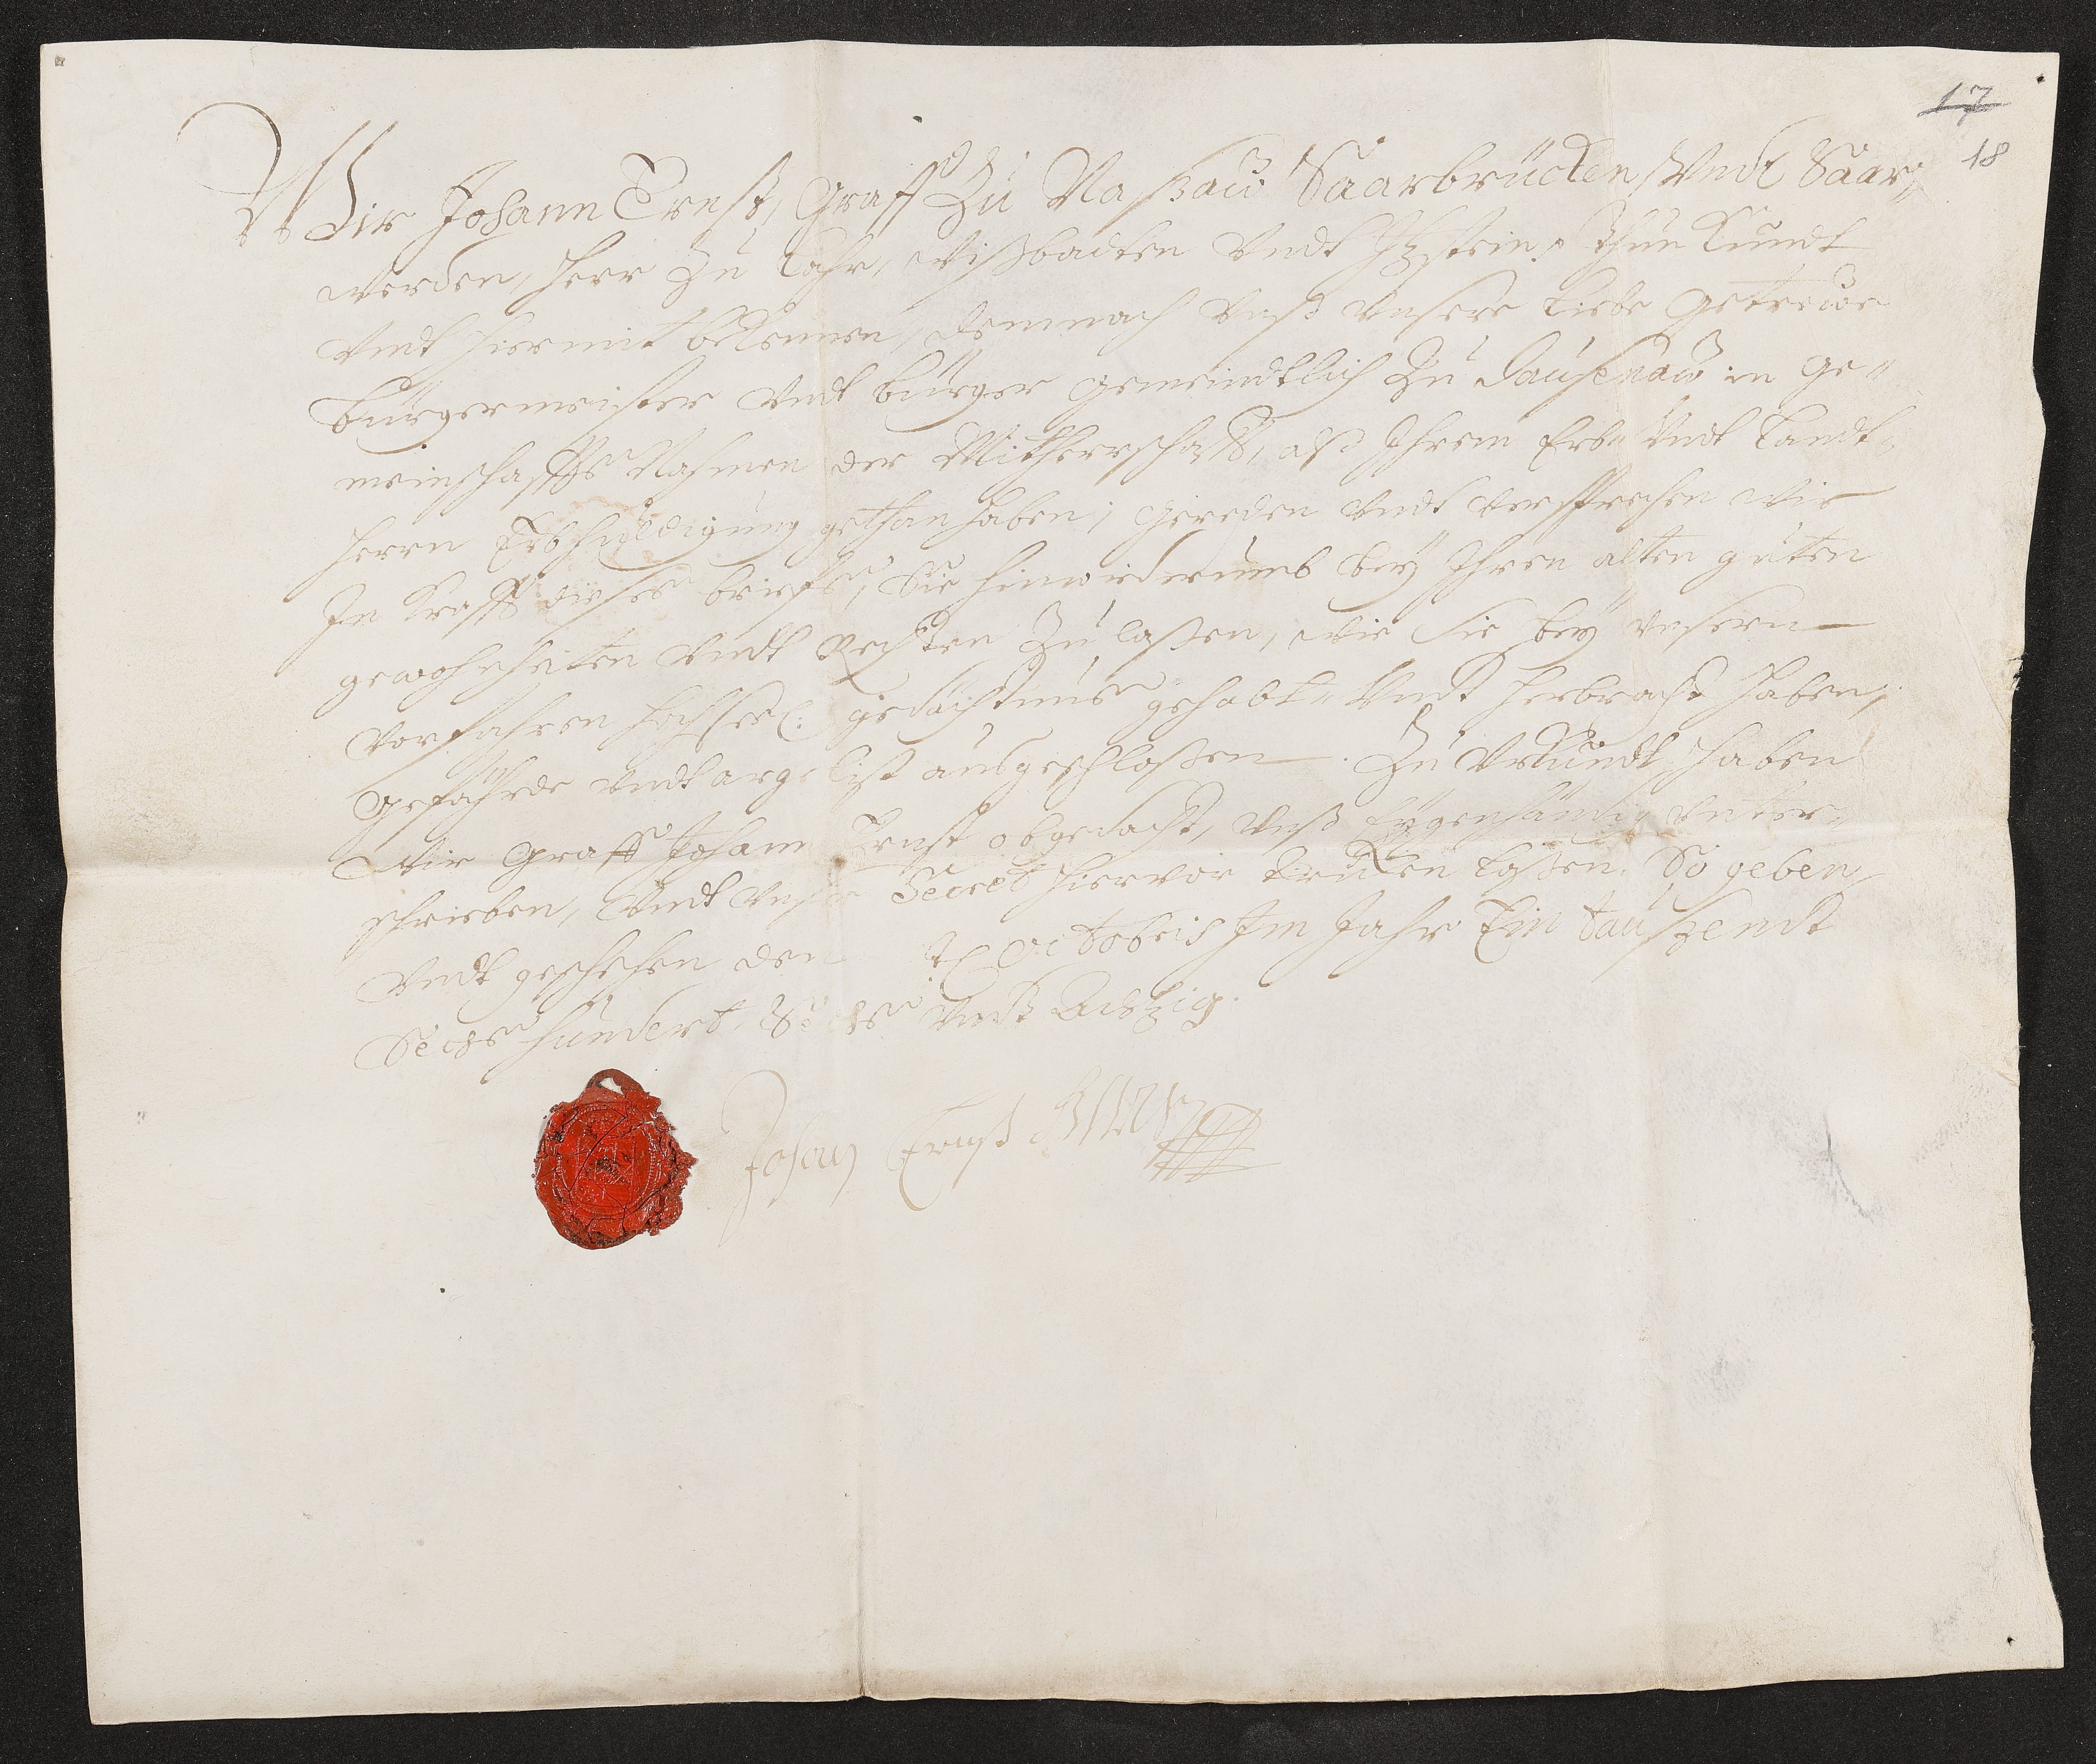 17
18
Wir Johann Ernst, Graff Zu Naßaw Saarbrücken, Vndt Saar„
werden, Herr Zu Lahr, Wißbadten Vndt Itzstein p Thun Kundt
Vndt hiermit bekennen, demnach Vnß Vnsere liebe getrewe
Bürgermeister Vndt bürger gemeindtlich Zu Dausenaw in ge„
meinschaffts Nahmen der Mitherrschafft, alß Ihrem Erb„ Vndt Landt„
herrn Erbhuldigung gethan haben; gereden Vndt Versprechen Wir
In Krafft dieses brieffs, Sie hinwiederumb bey Ihren alten guten
gewohnheiten Vndt Rechten Zu laßen, Wie Sie bey Vnsern
Vorfahren hochseel: gedächtnus gehabt„ Vndt herbracht haben,
Gefährde Vndt argelist ausgeschloßen. Zu Vrkundt haben
Wir Graff Johann Ernst obgedacht, Vnß Eygenhändig Vnter„
schrieben, Vndt Vnser Secret hiervor trucken laßen. So geben,
Vndt geschehen den Octobris Im Jahr Ein tauszendt
Sechs hundert, Sechs Vndt Achtzig.
Johan Ernst